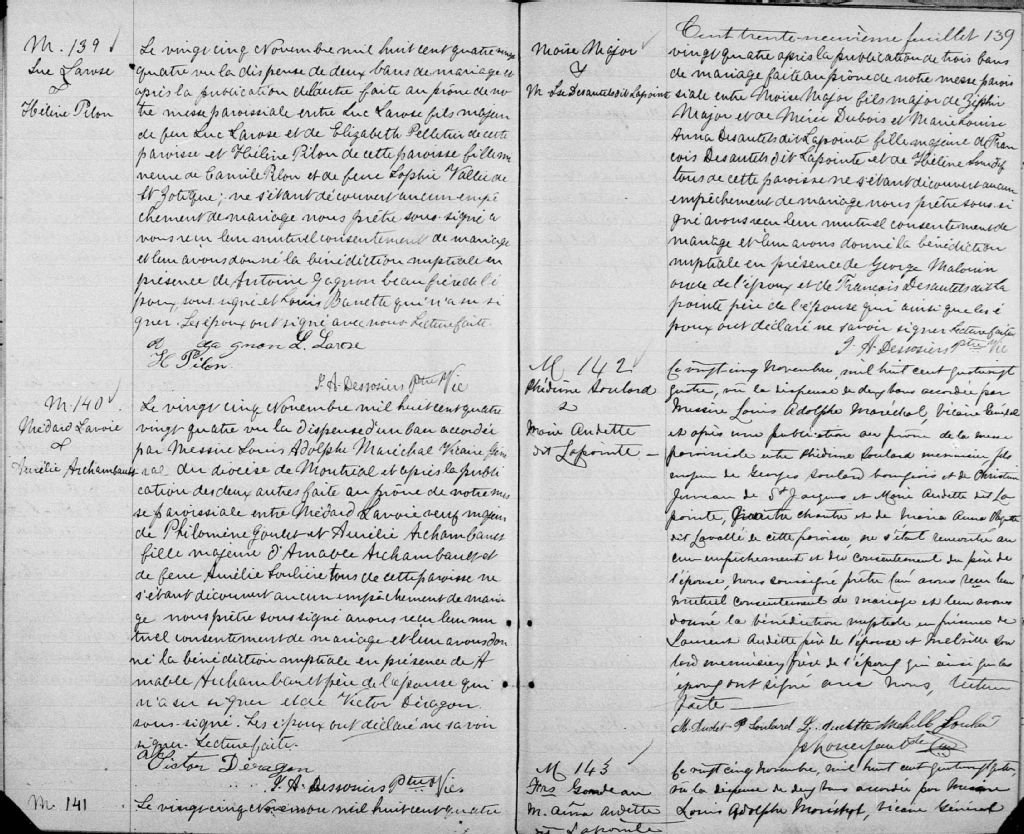 M. 139
Luc Larose
&
Hélène Pilon
Le vingt cinq Novembre mil huit cent quatre vingt
quatre vu la dispense de deux bans de mariage et
après la publication de l'autre faite au prône de no
tre messe paroissiale entre Luc Larose fils majeur
de feu Luc Larose et de Elizabeth Pelletier de cette
paroisse et Hélène Pilon de cette paroisse fille mi
neure de Camile Pilon et de feue Sophie Vallée de
St Zotique; ne s'étant découvert aucun empê
chement de mariage nous prêtre sous-signé a
vons reçu leur mutuel consentement de mariage
et leur avons donné la bénédiction nuptiale en
présence de Antoine Gagnon beau frère de l'é
poux, sous-signé et Louis Barette qui n'a su si
gner. Les époux ont signé avec nous. Lecture faite.
a gagnon L. Larose
H Pilon.
J. A. Desrosiers Ptre Vic
M. 140
Médard Lavoie
&
Aurélie Archambault
Le vingt cinq Novembre mil huit cent quatre
vingt quatre vu la dispense d'un ban accordée
par Messire Louis Adolphe Maréchal Vicaire Géné
ral du diocèse de Montréal et après la publi
cation des deux autres faite au prône de notre mes
se paroissiale entre Médard Lavoie veuf majeur
de Philomène Goulet et Aurélie Archambault
fille majeure d'Amable Archambault et
de feue Amélie Soulière tous de cette paroisse ne
s'étant découvert aucun empêchement de maria
ge nous prêtre sous signé avons reçu leur mu
tuel consentement de mariage et leur avons don
né la bénédiction nuptiale en présence de A
mable Archambault père de l'épouse qui
n'a su signer et de Victor Déragon
sous-signé. Les époux ont déclaré ne savoir
signer. Lecture faite.
Victor Déragon
J. A. Desrosiers Ptre Vic
M. 141
Le vingt cinq Novembre mil huit cent quatre
Cent trente-neuvième feuillet 139
Moïse Major
&
M. Lse Desautels dit Lapointe
vingt quatre après la publication de trois bans
de mariage faite au prône de notre messe parois
siale entre Moïse Major fils major de Zéphir
Major et de Mérée Dubois et Marie Louise
Anna Desautels dit Lapointe fille majeure de Fran
çois Desautels dit Lapointe et de Hélène
tous de cette paroisse ne s'étant découvert aucun
empêchement de mariage nous prêtre sous-si
gné avons reçu leur mutuel consentement de
mariage et leur avons donné la bénédiction
nuptiale en présence de George Malouin
oncle de l'époux et de François Desautels dit La
pointe père de l'épouse qui ainsi que les é
poux ont déclaré ne savoir signer Lecture faite
J. A. Desrosiers Ptre Vic
M 142
Phédime Soulard
&
Marie Audette
dit Lapointe
Le vingt cinq Novembre, mil huit cent quatrevingt
quatre, vu la dispense de deux bans accordée par
Messire Louis Adolphe Maréchal, Vicaire Général
et après une publication au prône de la messe
paroissiale entre Phédime Soulard menuisier fils
majeur de Georges Soulard bourgeois et de Christine
Juneau de St Jacques et Marie Audette dit La
pointe, chantre et de Maria Anna
dit Lavallée de cette paroisse, ne s'étant rencontré au
cun empêchement et du consentement du père de
l'épouse, Nous soussigné prêtre curé avons reçu leur
mutuel consentement de mariage et leur avons
donné la bénédiction nuptiale en présence de
Laurent Audette père de l'épouse et Melville Sou
lard menuisier frère de l'époux qui ainsi que les
époux ont signé avec nous, lecture
faite
M. Audet P Soulard L. Audette Melville Soulard
M 143
Frs Gendreau
M. Anna Audette
dit Lapointe
Le vingt cinq novembre, mil huit cent quatrevingt quatre,
vu la dispense de deux bans accordée par Messire
Louis Adolphe Maréchal, Vicaire Général